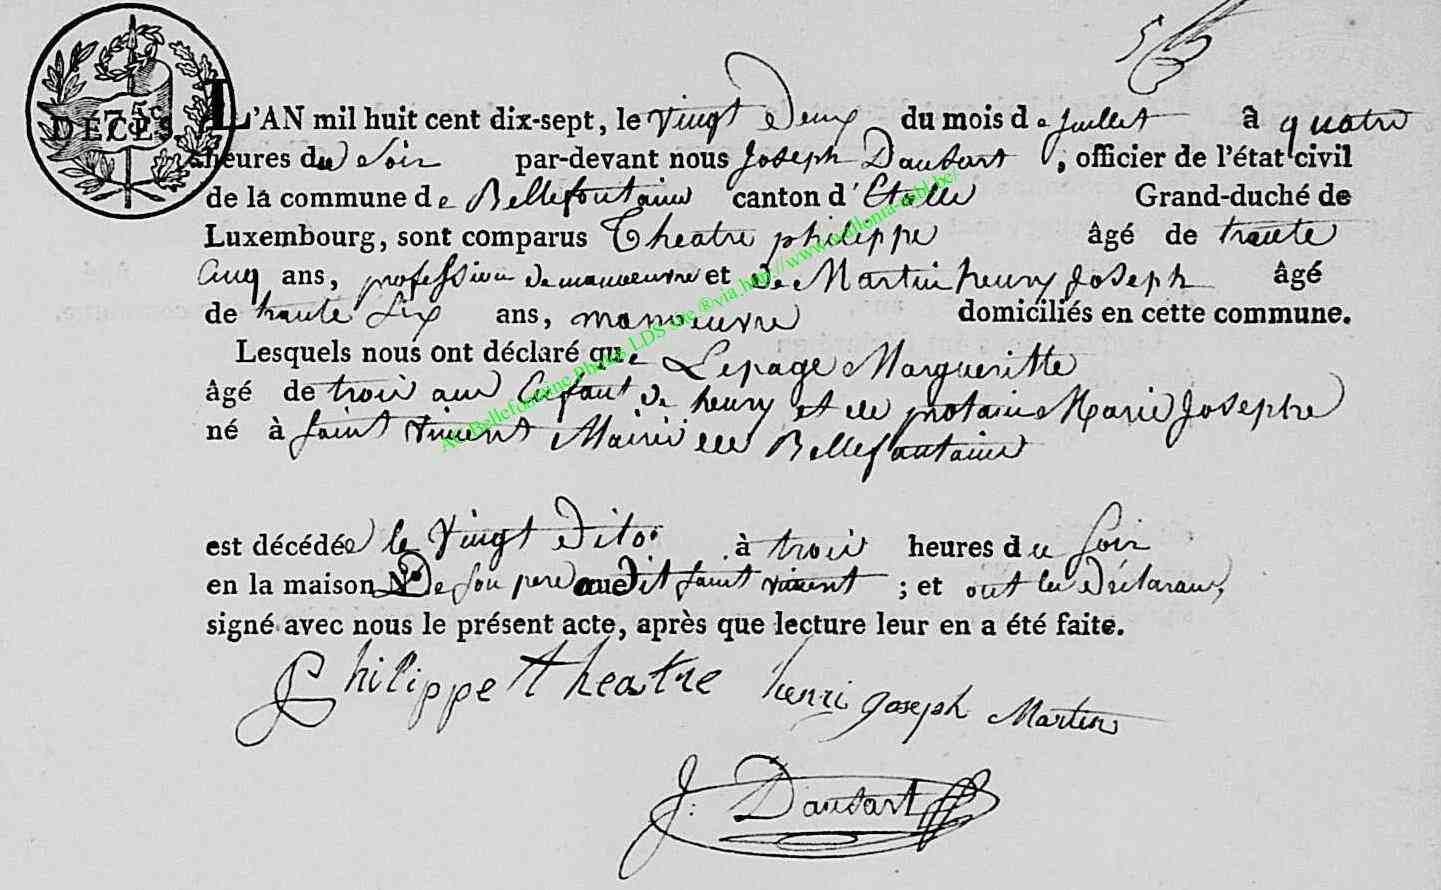 5
75 C
DÉCÈS.
L'AN mil huit cent dix-sept, le vingt Deux du mois de Juillet à quatre
heures du Soir par-devant nous Joseph Dausart, officier de l'état civil
de la commune de Bellefontaine canton d'Etalle Grand-duché de
Luxembourg, sont comparus Theatre philippe âgé de trente
Cinq ans, profession de manoeuvre et de Martin henry Joseph âgé
de trente Six ans, manoeuvre domiciliés en cette commune.
Lesquels nous ont déclaré que Lepage Margueritte
âgé de trois ans Enfant de henry et de Marie Josephe
né à Saint Vincent Mairie de Bellefontaine
est décédée le Vingt Dito à trois heures du Soir
en la maison De son pere audit Saint Vincent ; et ont les Déclarans,
signé avec nous le présent acte, après que lecture leur en a été faite.
Philippe Theatre henri joseph Martin
J: Dausart